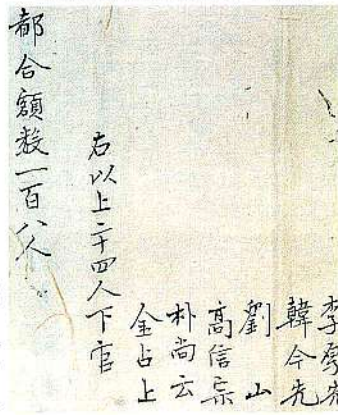 韓今先
劉山
高信
朴尚云
金占上
右以上二十四人下官
都合額数一百八人